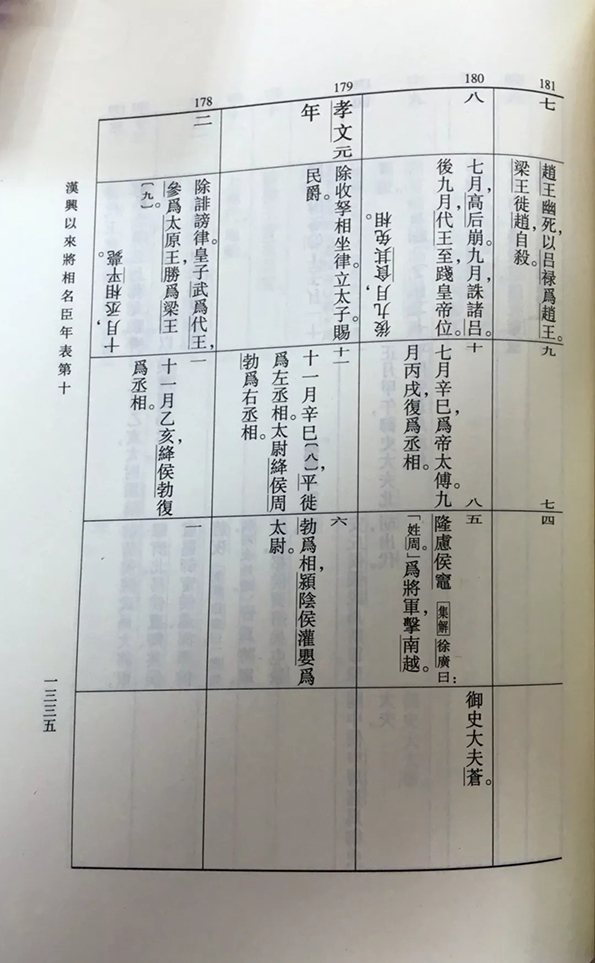 181
七
趙王幽死，以吕禄爲趙王。
梁王徙趙，自殺。
九
七
四
180
八
七月，高后崩。九月，誅諸吕。
後九月，代王至，踐皇帝位。
後九月，食其免相。
十
七月辛巳，爲帝太傅。九
月丙戌，復爲丞相。
八
五
隆慮侯竈，集解徐廣曰：
「姓周。」爲將軍，擊南越。
御史大夫蒼。
179
孝文元
年
除收孥相坐律。立太子。賜
民爵。
十一
十一月辛巳，〔八〕平徙
爲左丞相。太尉絳侯周
勃爲右丞相。
六
勃爲相，潁陰侯灌嬰爲
太尉。
178
二
除誹謗律。皇子武爲代王，
參爲太原王，勝爲梁王。
〔九〕
十月，丞相平薨。
一
十一月乙亥，絳侯勃復
爲丞相。
一
漢興以來將相名臣年表第十
一三三五